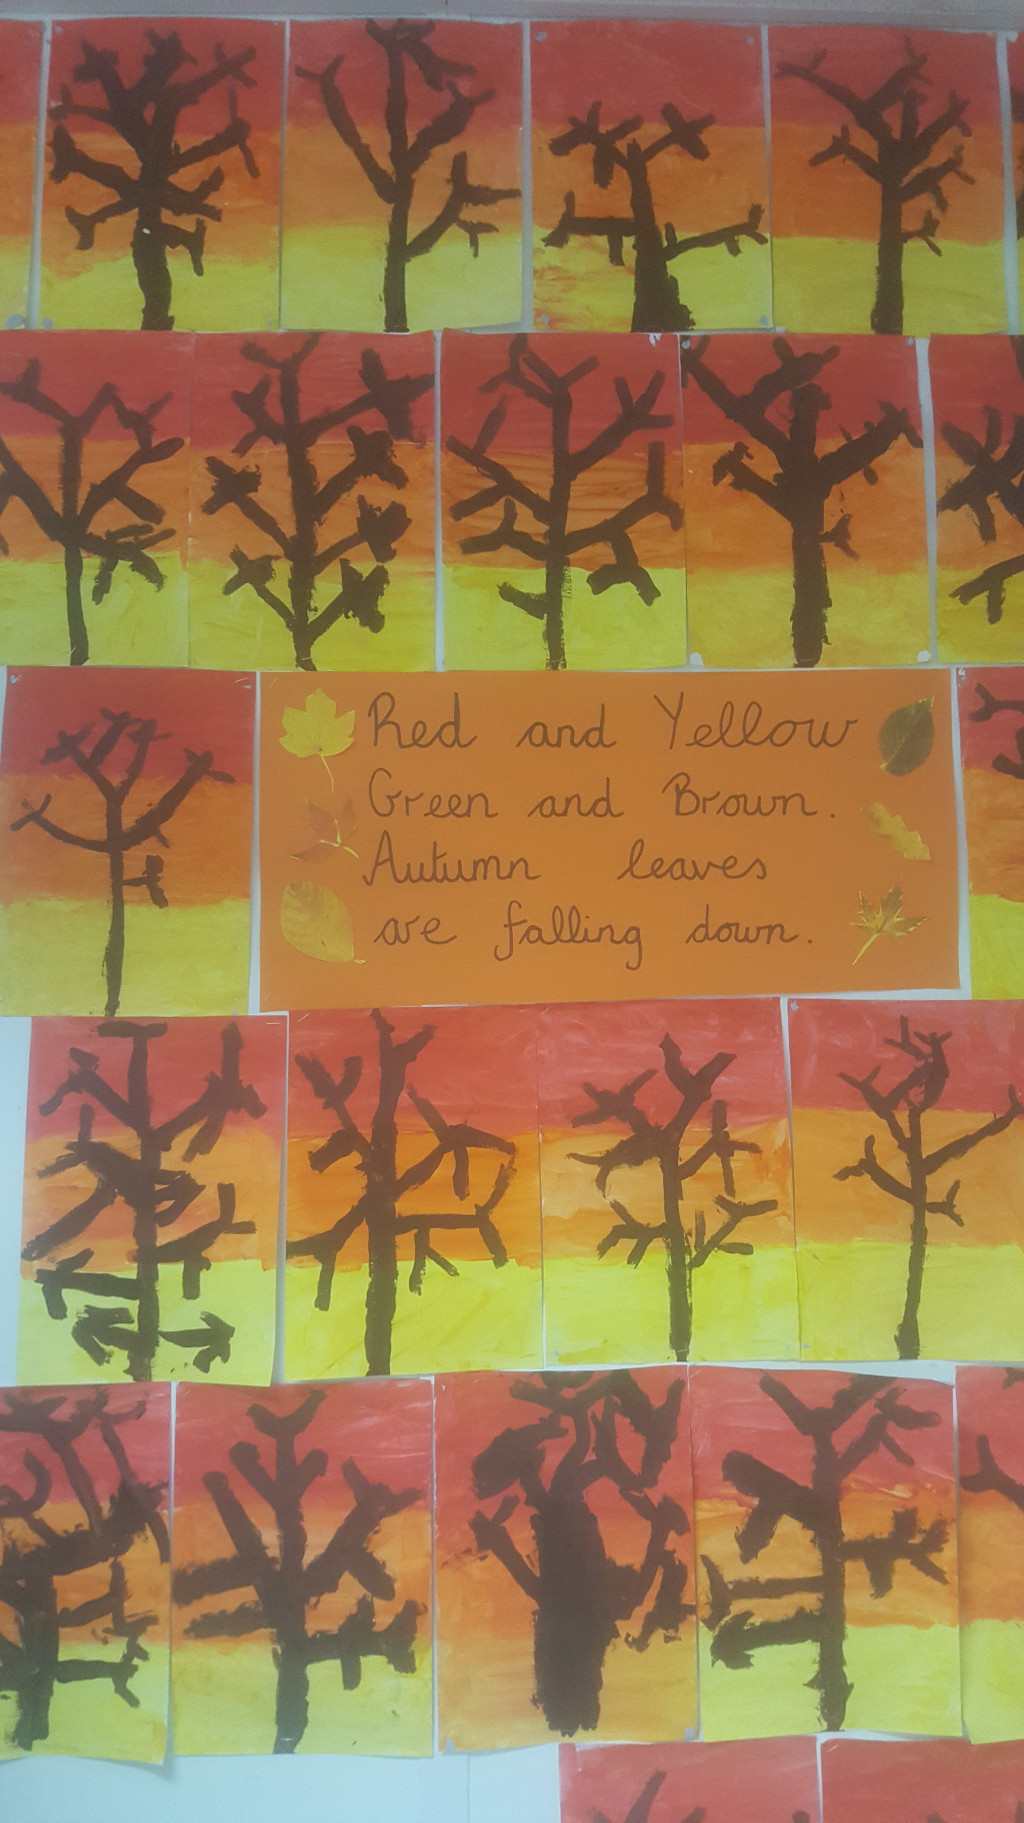 Red and Yellow
Green and Brown.
Autumn leaves
are falling down.